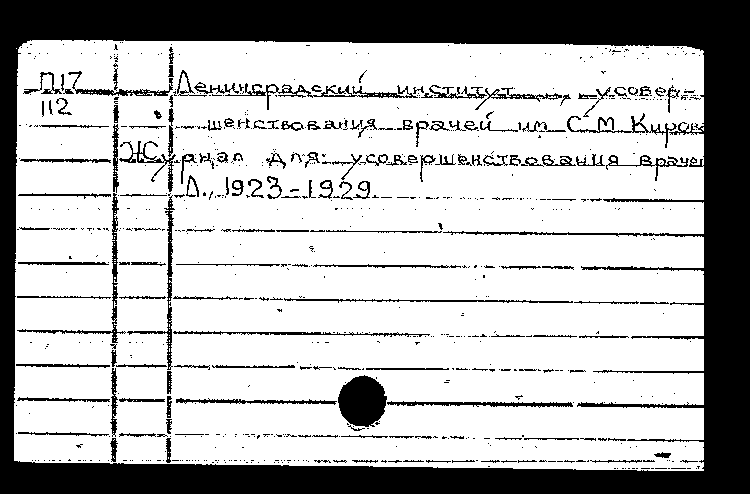 П17
112
Ленинградский институт усовер-
шенствования врачей им С М Кирова
Журнал для усовершенствования врачей
Л., 1923-1929.